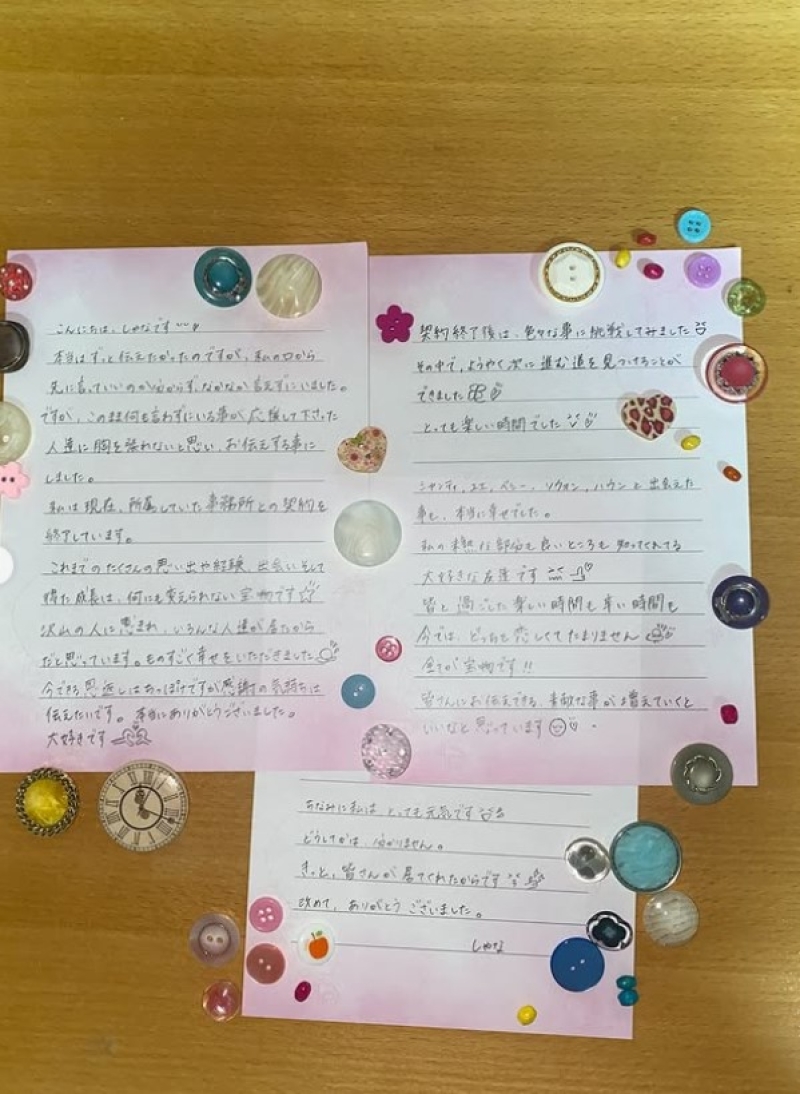 こんにちは、しゃなです
本当はずっと伝えたかったのですが、私の口から
先に言っていいのか分からず、なかなか言えずにいました。
ですが、このまま何も言わずにいる事が応援して下さった
人達に胸を張れないと思い、お伝えする事に
しました。
私は現在、所属していた事務所との契約を
終了しています。
これまでのたくさんの思い出や経験、出会いそして
得た成長は、何にも変えられない宝物です
沢山の人に恵まれ、いろんな人達が居たから
だと思っています。ものすごく幸せをいただきました
今できる恩返しはちっぽけですが感謝の気持ちは
伝えたいです。本当にありがとうございました。
大好きです
契約終了後は、色々な事に挑戦してみました
その中で、ようやく次に進む道を見つけることが
できました
とっても楽しい時間でした
シャンティ、ユエ、ベシー、ソウォン、ハウンと出会えた
事も、本当に幸せでした。
私の未熟な部分も良いところも知ってくれてる
大好きな友達です
皆と過ごした楽しい時間も辛い時間も
今では、どっちも恋しくてたまりません
全てが宝物です!!
皆さんにお伝えできる、素敵な事が増えていくと
いいなと思っています
ちなみに私はとっても元気です
どうしてかは、分かりません。
きっと、皆さんが居てくれたからです
改めて、ありがとうございました。
しゃな